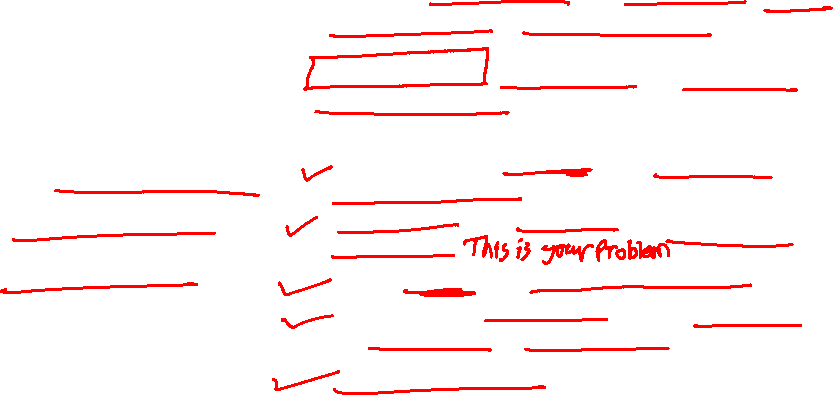 This is your Problem